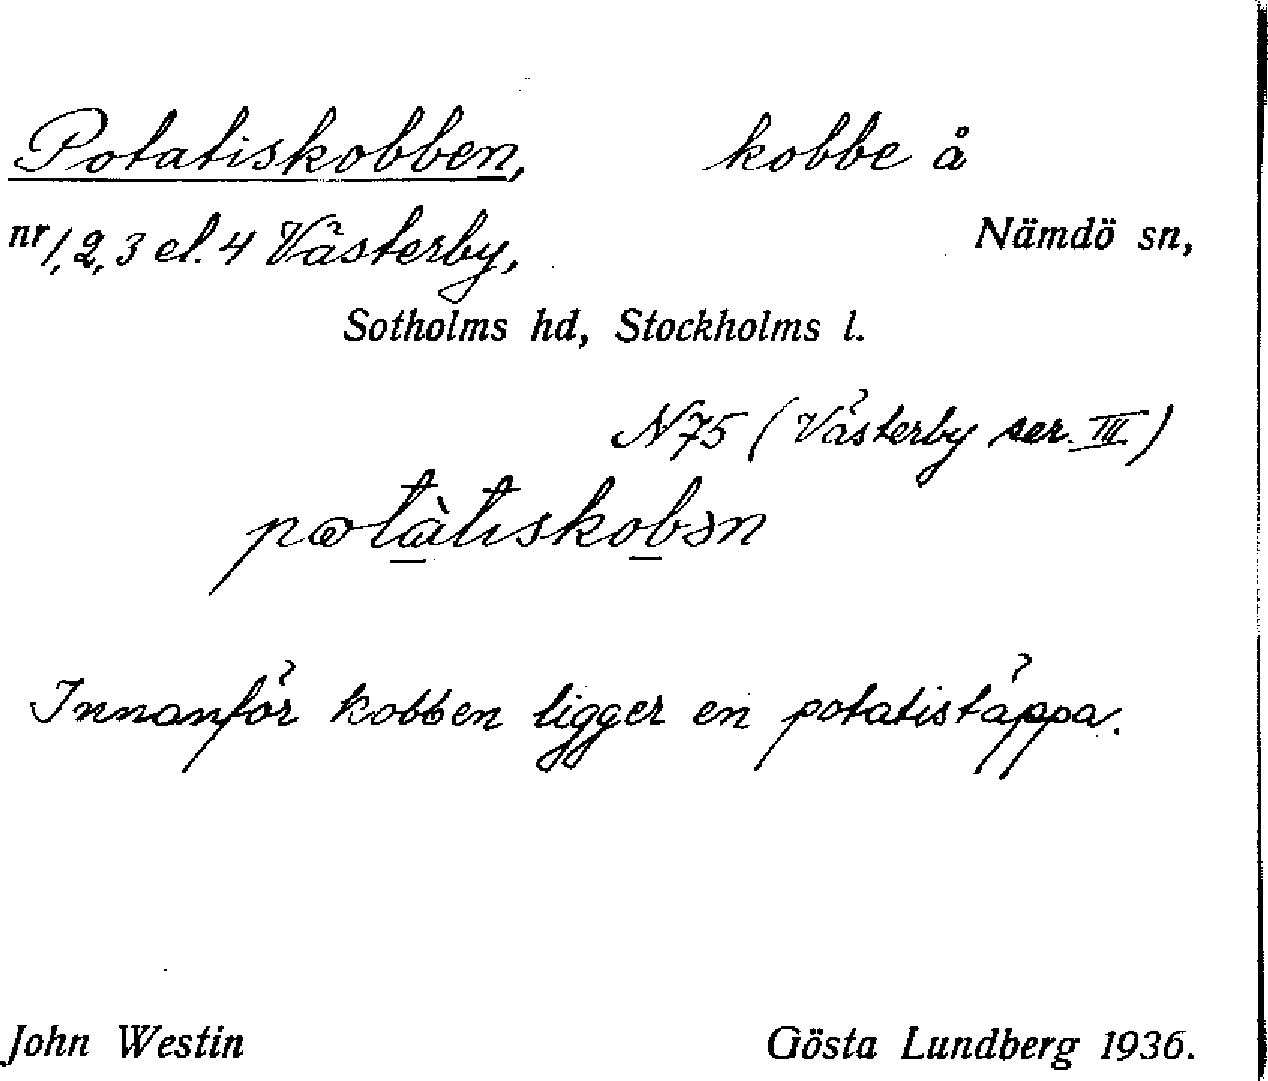 Potatiskobben, kobbe å
nr 1, 2, 3 el. 4 Västerby, Nämdö sn,
Sotholms hd, Stockholms l.
N 75 (Västerby ser. III)
potàtıskobən
Innanför kobben ligger en potatistäppa.
John Westin Gösta Lundberg 1936.